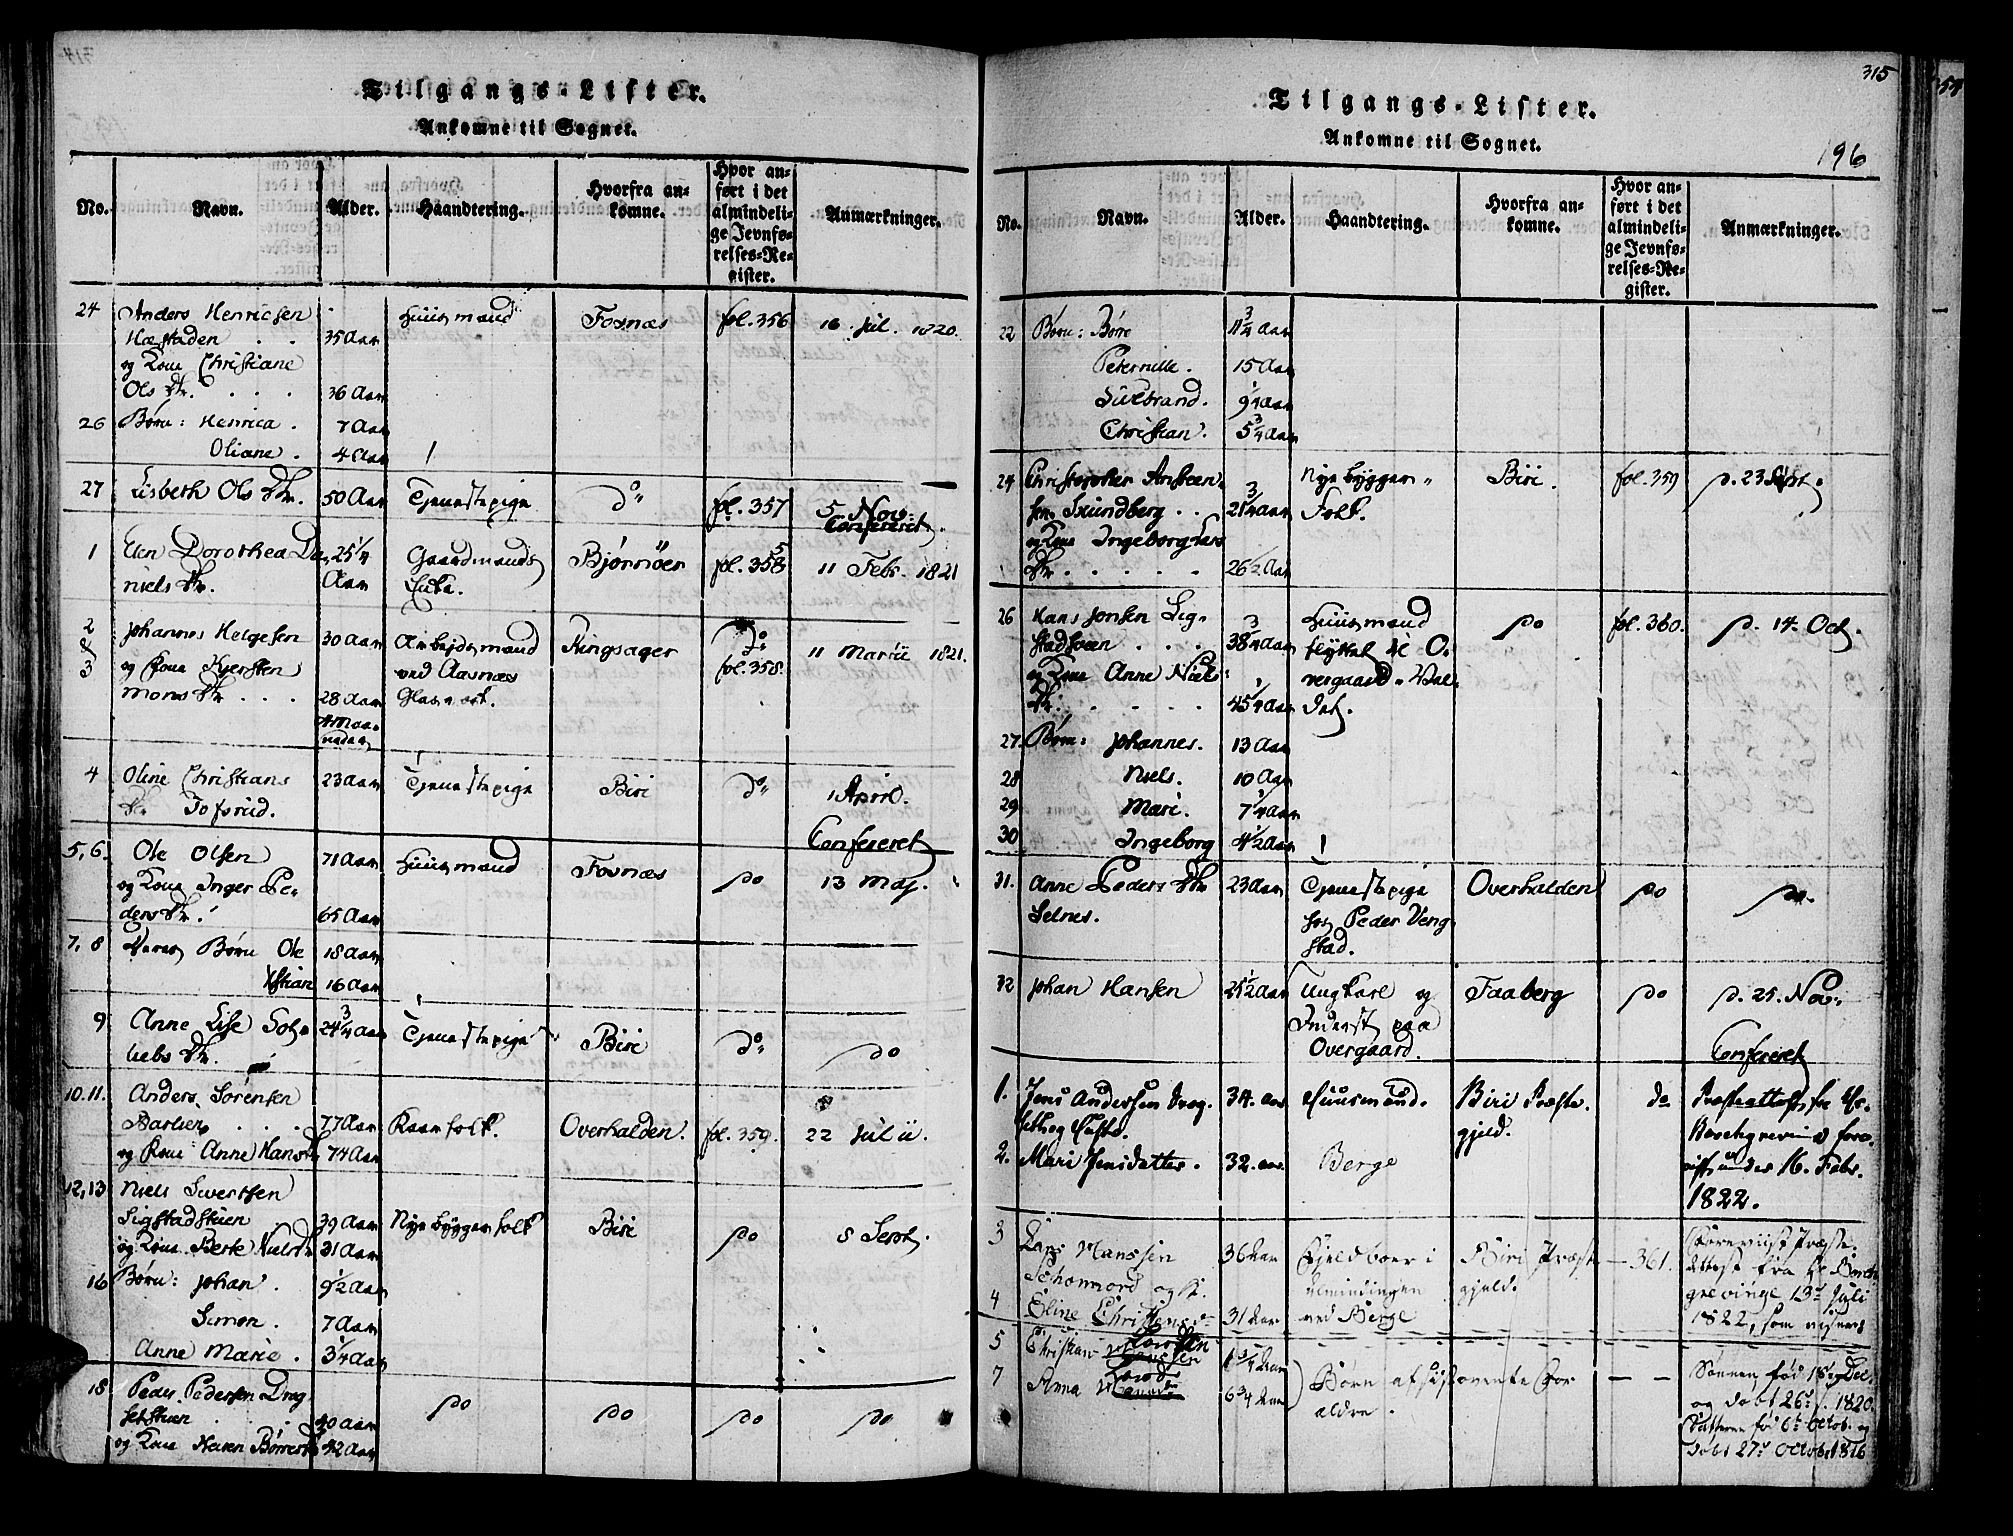 314
Tilgangs-Lister.
Ankomne til Sognet.
No. Navn. Alder. Haandtering. Hvorfra ankomne. Hvor anført i det almindelige Jevnførelses-Register. Anmærkninger.
24 Anders Henricsen Huusmand Fosnæs fol. 356 16. Jul. 1820.
Hæstaden . . 35 Aar
og Kone Christiane
Ols Dtr. . . . 36 Aar
26 Børn: Henrica . 7 Aar
Oliane . 4 Aar
27 Lisbeth Ols Dtr. 50 Aar Tjenestepige do fol. 357 5 Nov.
Confereret.
1 Elen Dorothea Da- 25 1/4 Gaardmands Bjørnöer fol. 358 11 Febr. 1821
niels Dtr. Aar Enke.
2 Johannes Helgesen 30 Aar Arbejdsmand Ringsager do 11 Martii 1821.
& og Kone Kjersten ved Aasnæs fol. 358.
3 Mons Dtr . . . 28 Aar Glasværk.
4 Maa-
neder
4 Oline Christians 23 Aar Tjenestepige Biri do 1 April.
Dtr. Tofsrud.
Confereret
5, 6. Ole Olsen 71 Aar Huusmand Fosnæs do 13 Maj.
og Kone Inger Pe-
ders Dtr. 65 Aar
7, 8 Deres Børn Ole 18 Aar
Xstian 16 Aar
9 Anne Lise Got- 24 3/4 Aar Tjenestepige Biri do do
liebs Dtr.
10. 11. Anders Sörensen
. . . 77 Aar Overhalden. fol. 359. 22 Julii.
og Kone Anne Hans Dtr 74 Aar
12, 13 Niels Sivertsen
Sigstadstuen 39 Aar Nye byggerfolk Biri do 8 Sept.
og Kone Berte Niels Dtr 31 Aar
16 Børn: Johan . 9 1/2 Aar
Simon . 7 Aar
Anne Marie . 3 1/4 Aar
18 Peder Pedersen Dreg- do do do do
setstuen . 40 Aar
og Kone Karen Børres Dtr 42 Aar
315
54
Tilgangs-Lister.
Ankomne til Sognet.
196
No. Navn. Alder. Haandtering. Hvorfra ankomne. Hvor anført i det almindelige Jevnførelses-Register. Anmærkninger.
22 Børn: Børre 11 3/4 Aar
Pernille. 15 Aar
Sivebrand. 9 1/4 Aar
Christian. 5 3/4 Aar
24 Christopher Ansten- Nye bygger- Biri. fol. 359 d. 23 Sept.
sen Svundberg . . 21 3/4 Aar Folk.
og Kone Ingeborg Lars
Dtr. . . . . . 26 1/2 Aar
26 Hans Jonsen Sig- Huusmand do fol. 360. d. 14. Oct.
stadsveen . . . 38 3/4 Aar flyttet til O-
og Kone Anne Niels vergaard
Dtr. . . . . 45 1/4 Aar
27. Børn: Johannes. 13 Aar
28 Niels. 10 Aar
29 Mari. 7 1/4 Aar
30 Ingeborg 4 1/2 Aar
31. Anne Peders Dtr 23 Aar Tjenestepige Overhalden do do.
Selnes. hos Peder Veng-
stad.
32 Johan Hansen 25 1/2 Aar Ungkarl og Faaberg do d. 25. Nov.
Inderst paa
Overgaard. Confereret
1. Jens Andersen Dreg- 34. aar Huusmand. Biri Præste- do Præsteattest fra Hr.
seth og Hustr. gjeld. Borchgrevink fore-
2. Mari Jensdatter. 32. aar Berge viist under 16. Febr.
1822.
3 Lars Hanssen 36 Aar Biri Præste- 361. Foreviist Præste-
og K. Almindingen gjeld. Attest fra Hr Borch-
4 Eline Christens Dr 31 Aar ved Berge grevinge 13de Juli
1822, som
5 Christian Larssen 1 3/4 Aar Børn af sistnævnte For- — — Sønnen fød 18de Dec.
7 Anna Larsdr 6 3/4 Aar ældre. og døbt 26de s. 1820.
Datteren fød 6te Octob. og
døbt 27de Octobr 1816